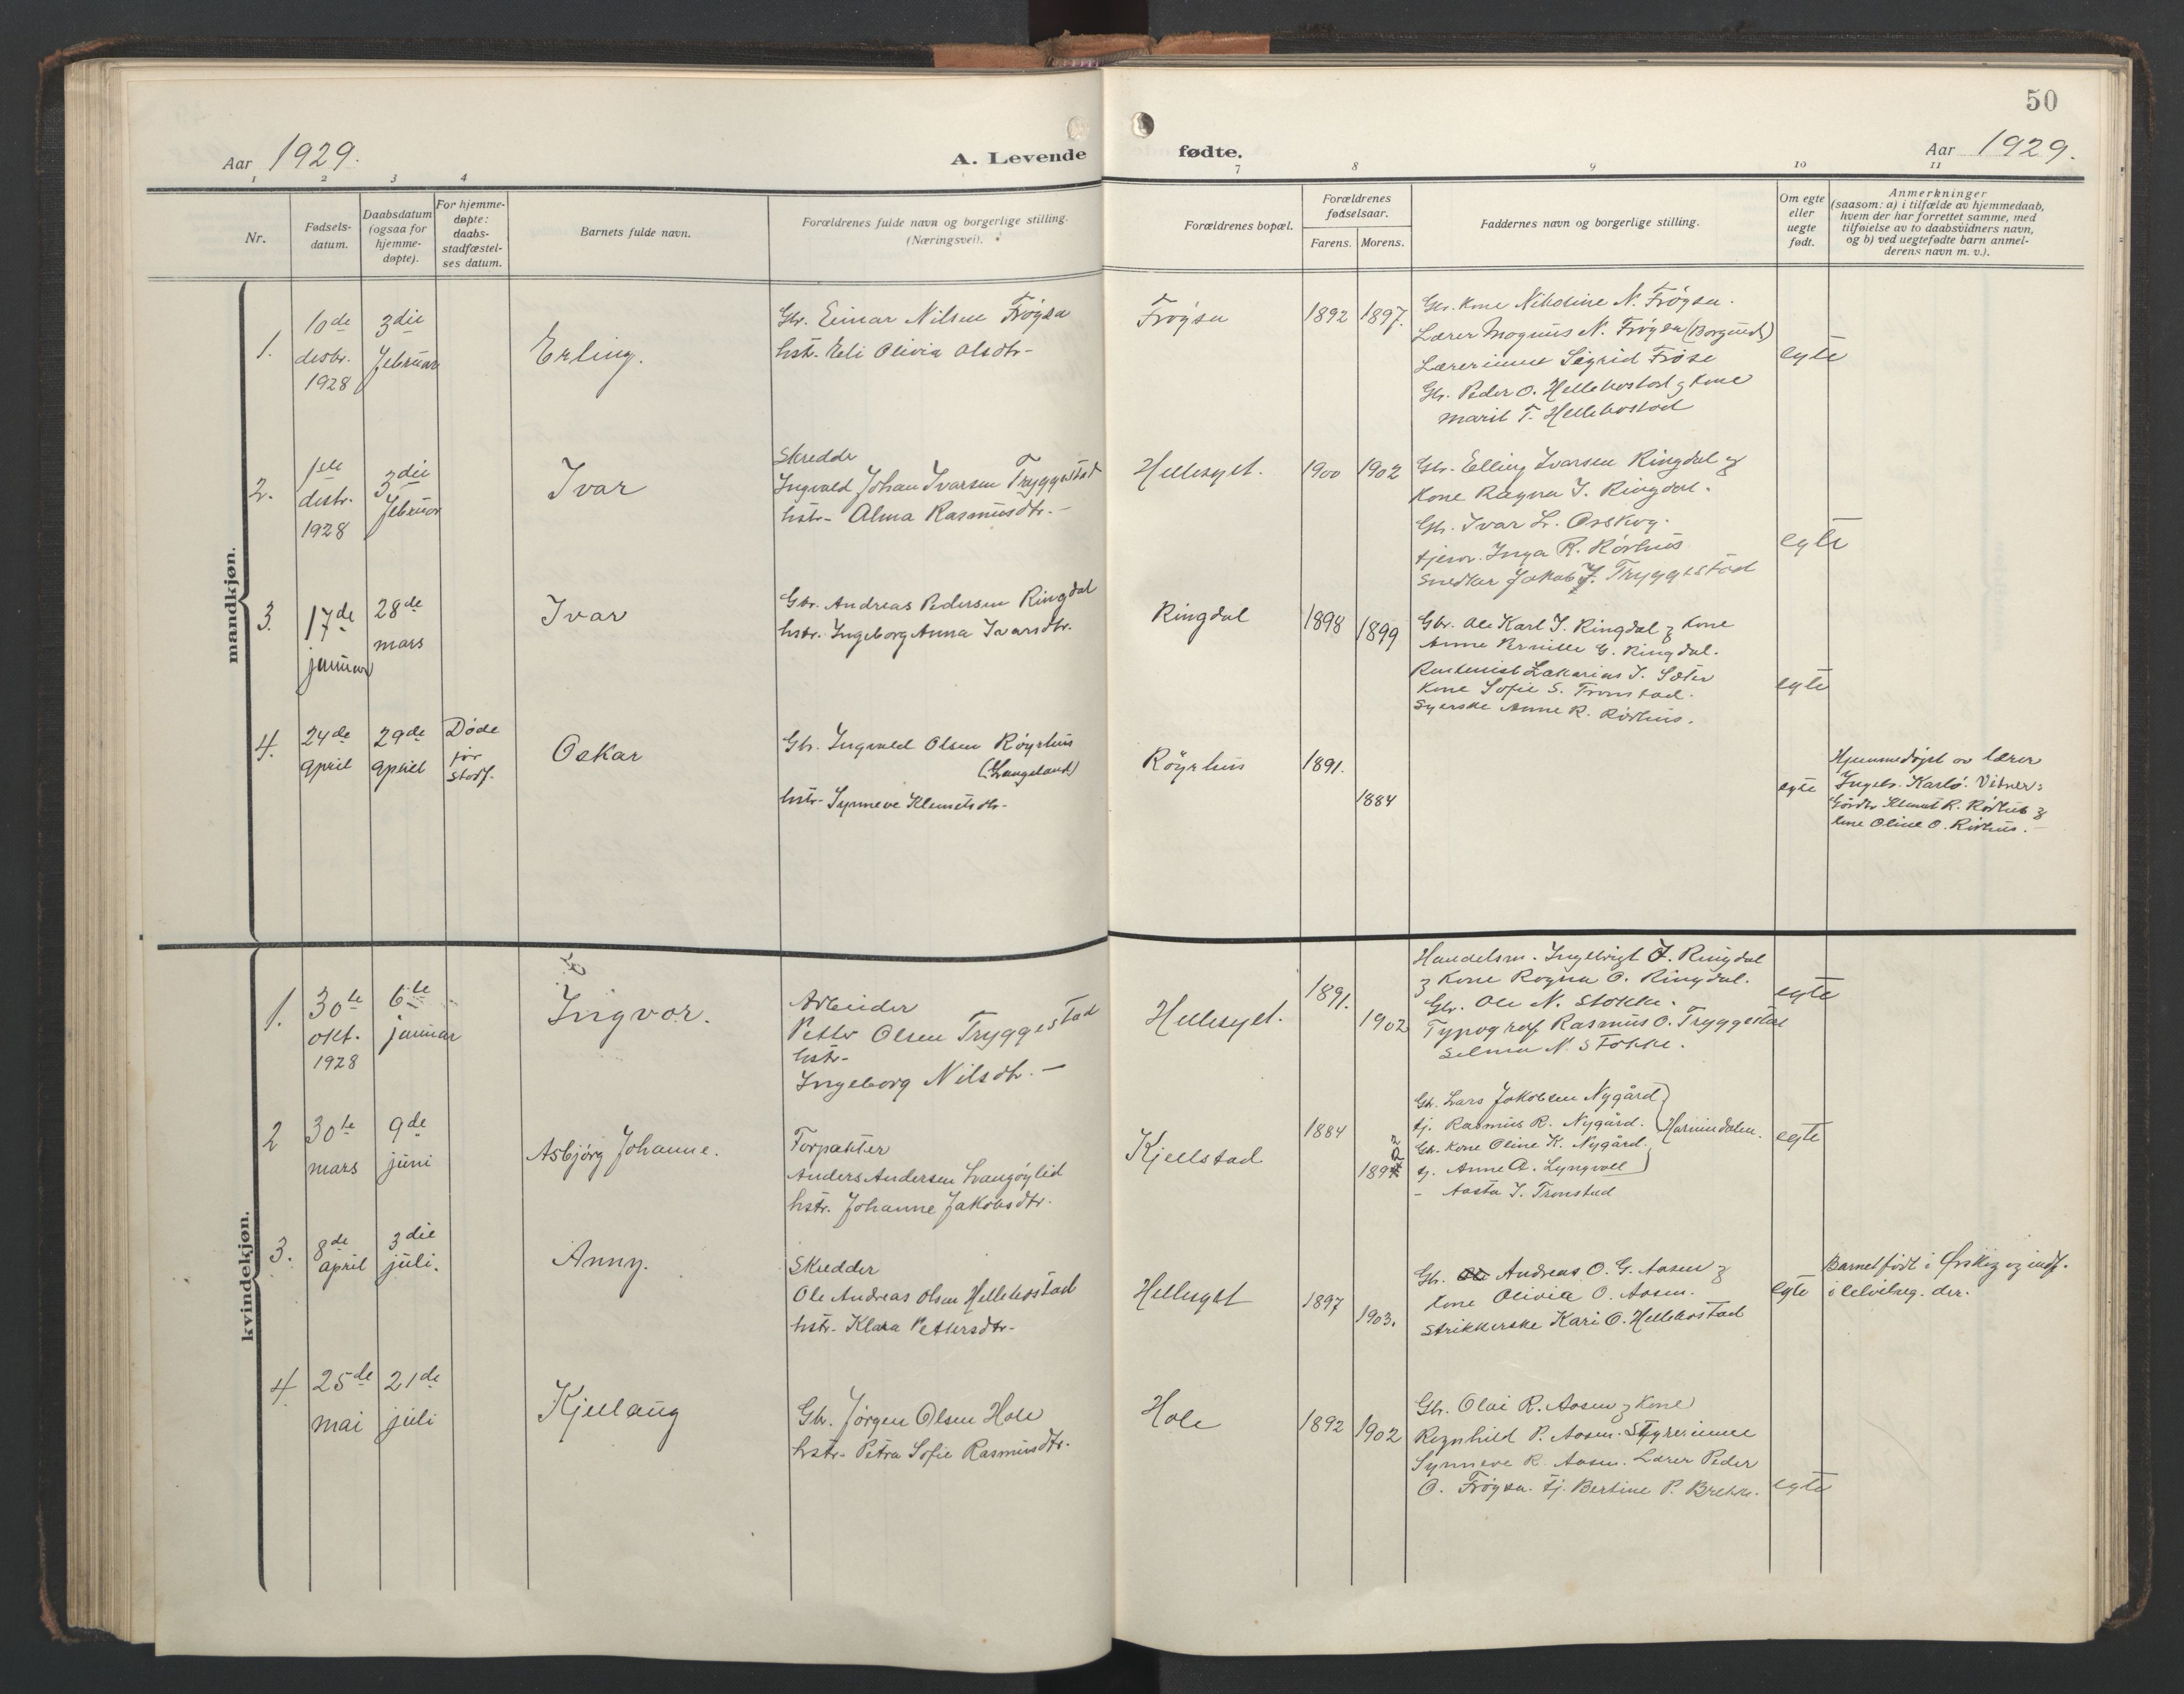 50
Aar 1929.
A. Levende
fødte.
Aar 1929.
1 2 3 4
7 8 9 10 11
Nr.
Fødsels-
datum.
Daabsdatum
(ogsaa for
hjemme-
døpte).
For hjemme-
døpte:
daabs-
stadfæstel-
ses datum.
Barnets fulde navn.
Forældrenes fulde navn og borgerlige stilling.
(Næringsvei).
Forældrenes bopæl.
Forældrenes
fødselsaar.
Farens. Morens.
Faddernes navn og borgerlige stilling.
Om egte
eller
uegte
født.
Anmerkninger
(saasom: a) i tilfælde av hjemmedaab,
hvem der har forrettet samme, med
tilføielse av to daabsvidners navn,
og b) ved uegtefødte barn anmel-
derens navn m. v.).
mandkjøn.
1.
10de
desbr.
1928
3die
februar
Erling.
Gbr. Einar Nilsen Frøysa
hstr. Eli Olivia Olsdtr-
Frøysa
1892
1897.
Gbr. kone Nikoline N. Frøysa.
Lærer Magnus N. Frøysa (Borgund)
Lærerinne Sigrid Frøse
Gbr. Peder O. Hellebostad & kone
Marit T. Hellebostad
egte
2.
1ste
desbr.
1928
3die
februar
Ivar
Skredder
Ingvald Johan Ivarsen Tryggestad
hstr- Alma Rasmusdtr.-
Hellesylt.
1900
1902
Gbr. Elling Ivarsen Ringdal &
kone Ragna I. Ringdal.
Gbr. Ivar L. Ørskog.
tjener. Inga R. Rørhus
Snedker Jakob J. Tryggestad
egte
3.
17de
januar
28de
mars
Ivar
Gbr. Andreas Pedersen Ringdal
hstr. Ingeborg Anna Ivarsdtr.
Ringdal
1898
1899
Gbr. Ole Karl I. Ringdal & kone
Anne Pernille G. Ringdal.
Rentenist Zakarias I. Sæter
kone Sofie S. Tronstad.
Syerske Anne R. Rørhus.
egte
4.
24de
april
29de
april
Døde
før
stadf.
Oskar
Gbr. Ingvald Olsen Røyrhus
(Langeland)
hstr- Synneve Klemetsdtr-
Røyrhus
1891.
1884
egte
Hjemmedøpt av lærer
Ingebr. Karlsø. Vitner:
Gårdbr Klemet R. Rørhus &
kone Oline O. Rørhus.-
kvindekjøn.
1.
30te
okt.
1928
6te
januar
Ingvor.
Arbeider
Petter Olsen Tryggestad
hstr-
Ingeborg Nilsdtr.-
Hellesylt.
1891.
1902
Handelsm. Ingebrigt J. Ringdal
& kone Ragna O. Ringdal.
Gbr. Ole N. Stokke.
Typograf Rasmus O. Tryggestad
Selma N. Stokke.
egte
2
30te
mars
9de
juni
Asbjørg Johanne.
Forpakter
Anders Andersen Langøylid
hstr. Johanne Jakobsdtr.
Kjellstad
1884
Gbr. Lars Jakobsen Nygård
tj. Rasmus R. Nygård.
Gbr. kone Oline K. Nygård.
tj. Anne A. Lyngvoll
- Aasta I. Tronstad
egte
3.
8de
april
3die
juli.
Anny.
Skredder
Ole Andreas Olsen Hellebostad
hstr. Klara Pettersdtr-
Hellesylt
1897
1903.
Gbr. Andreas O. G. Aasen &
kone Olivia O. Aasen.
Strikkerske Kari O. Hellebostad
egte
Barnet født i Ørskog og indf.
i civilreg. der.
4.
25de
mai
21de
juli
Kjellaug
Gbr. Jørgen Olsen Hole
hstr- Petra Sofie Rasmusdtr.
Hole
1892
1902
Gbr. Olai R. Aasen & kone
Ragnhild P. Aasen. Styrerinne
Synneve R. Aasen. Lærer Peder
O. Frøysa. tj. Bertine P. Brekke.
egte